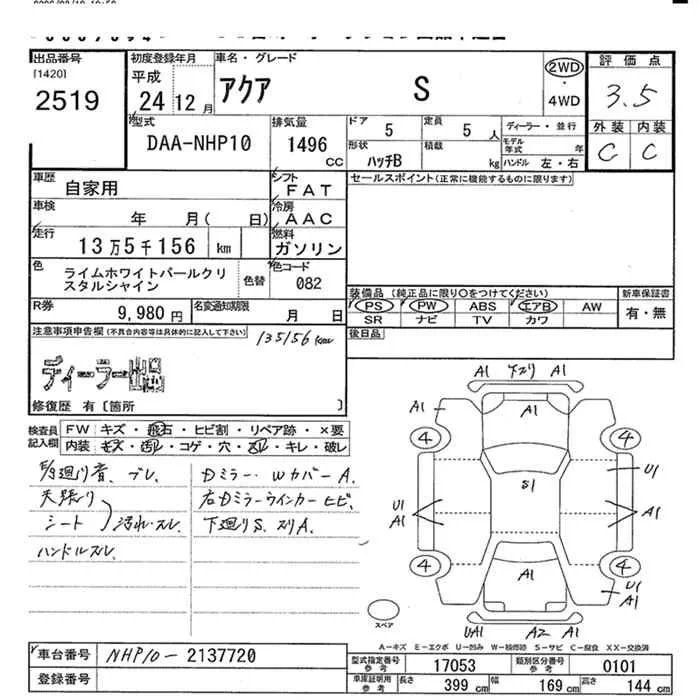 出品番号
[1420]
2519
初度登録年月
平成
24年12月
車名・グレード
アクア S
2WD
・
4WD
評価点
3.5
外装 内装
C C
型式
DAA-NHP10
排気量
1496
CC
ドア
5
定員
5人
形状
ハッチB
積載
kg
ディーラー・並行
モデル年式 年
ハンドル 左・右
車歴
自家用
シフト
FAT
セールスポイント(正常に機能するものに限ります)
車検
年 月( 日)
冷房
AAC
走行
13万5千156 km
燃料
ガソリン
色
ライムホワイトパールクリスタルシャイン
色替
色コード
082
装備品(純正品に限り○をつけてください)
PS PW ABS エアB AW
SR ナビ TV カワ
新車保証書
有・無
R券
9,980円
名変通知期限
月 日
後日品
注意事項申告欄(不具合内容等は具体的に記入して下さい)
135156km
ディーラー出品
修復歴 有〔箇所 〕
検査員記入欄
FW キズ・飛石・ヒビ割・リペア跡・×要
内装 キズ・汚レ・コゲ・穴・スレ・キレ・破レ
天張り
シート
汚れ・スレ
ハンドルスレ
Dミラー・WカバーA.
右Dミラーウインカーヒビ
下廻りS、スリA.
A1 下スリ A1
A1
4 4
U1
S1
U1
A1
A1
4 4
A1
U1
A1
UA1 A2 A1
スペア
A-キズ E-エクボ U-凹み W-補修跡 S-サビ C-腐食 XX-交換済
車台番号
NHP10-2137720
登録番号
型式指定番号
参考
17053
類別区分番号
参考
0101
車庫証明用
参考
長さ
399 cm
幅
169 cm
高さ
144 cm